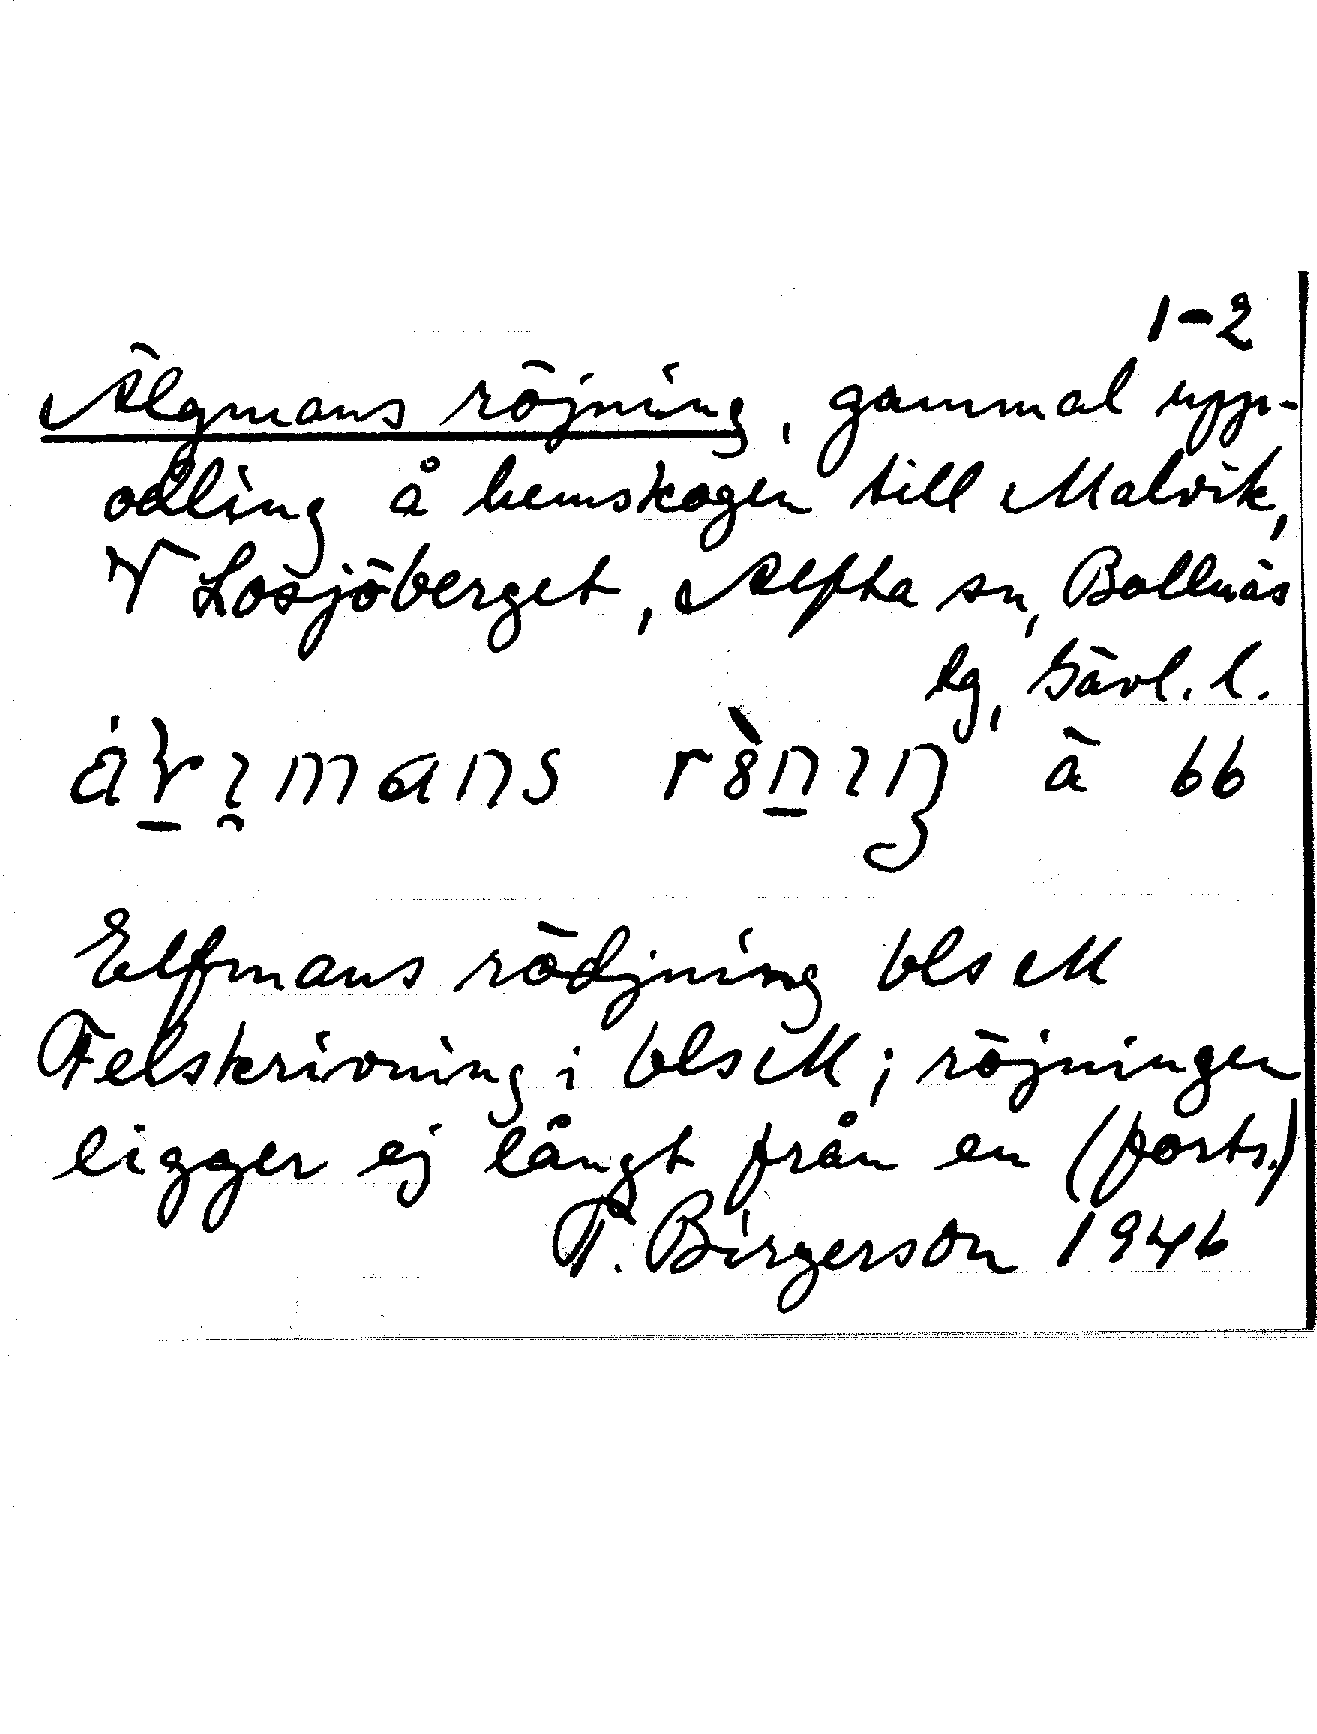 1-2
Älgmans röjning, gammal upp-
odling å hemskogen till Malvik,
V Losjöberget, Alfta sn, Bollnäs
lg, Gävl. l.
rö̀nıŋ ä 66
Elfmans rödjning bls M
Felskrivning i bls M; röjningen
ligger ej långt från en (forts.)
T. Birgerson 1946